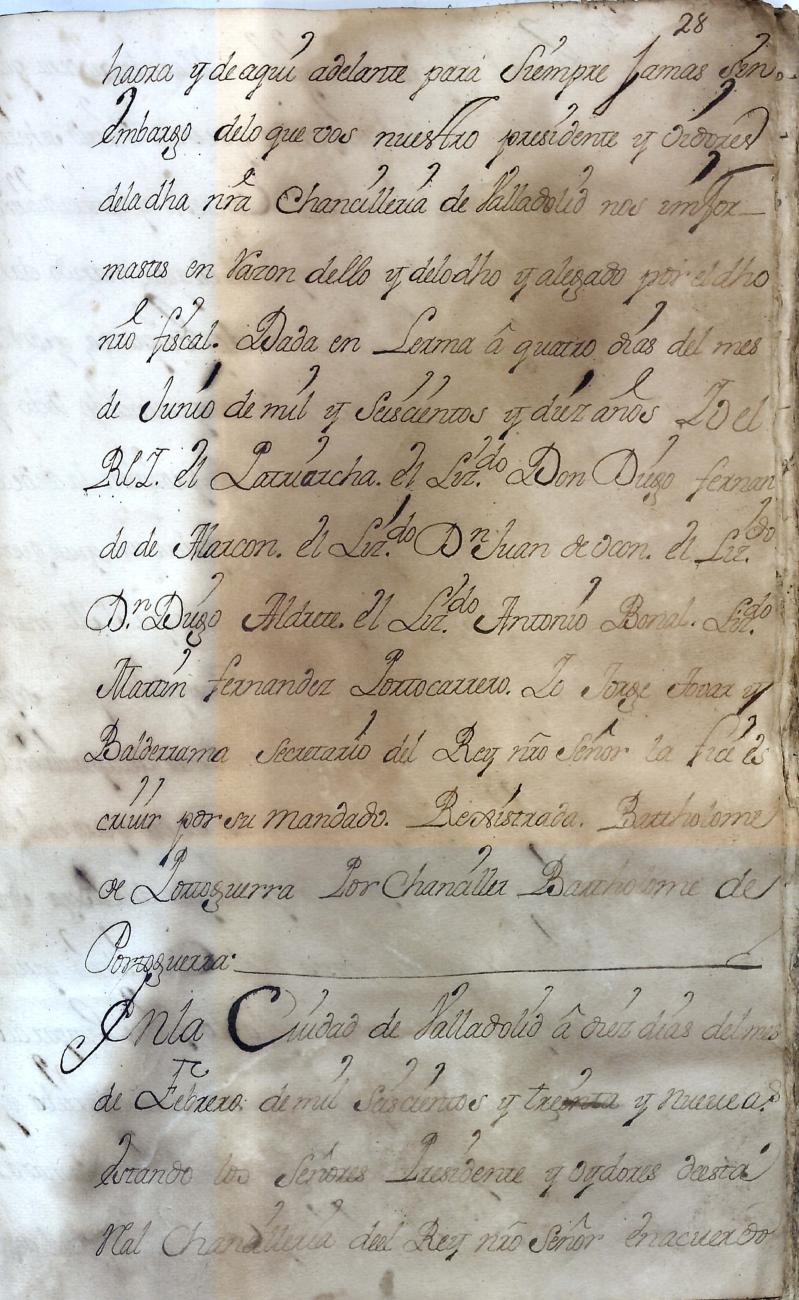 28
haora y de aqui adelante para Siempre Jamas Sin
embargo delo que vos nuestro presidente y oidores
dela dha nra Chancilleria de Valladolid nos imfor_
mastes en Razon dello y delo dho y alegado por el dho
nro fiscal. Dada en Lerma â quatro dias del mes
de Junio de mil y Seiscientos y diez años Yo el
REI. el Patriarcha. el Liz.do Don Diego fernan
do de Alarcon. el Liz.do Dn Juan de ocon. el Liz.do
D.n Diego Aldrete. el Liz.do Antonio Bonal. Liz.do
Martin fernandez Portocarrero. Yo Jorge tovar y
Balderrama secretario del Rey nro Señor la fice es
criuir por su mandado. Rexistrada. Bartholome
de Portoguerra Por Chanciller Bartholome de
Portoguerra.
En la Ciudad de Valladolid â diez dias del mes
de Febrero de mil Seiscientos y treinta y nueue a.s
estando los Señores Presidente y oydores desta
Ral Chancilleria deel Rey nro Señor en acuerdo